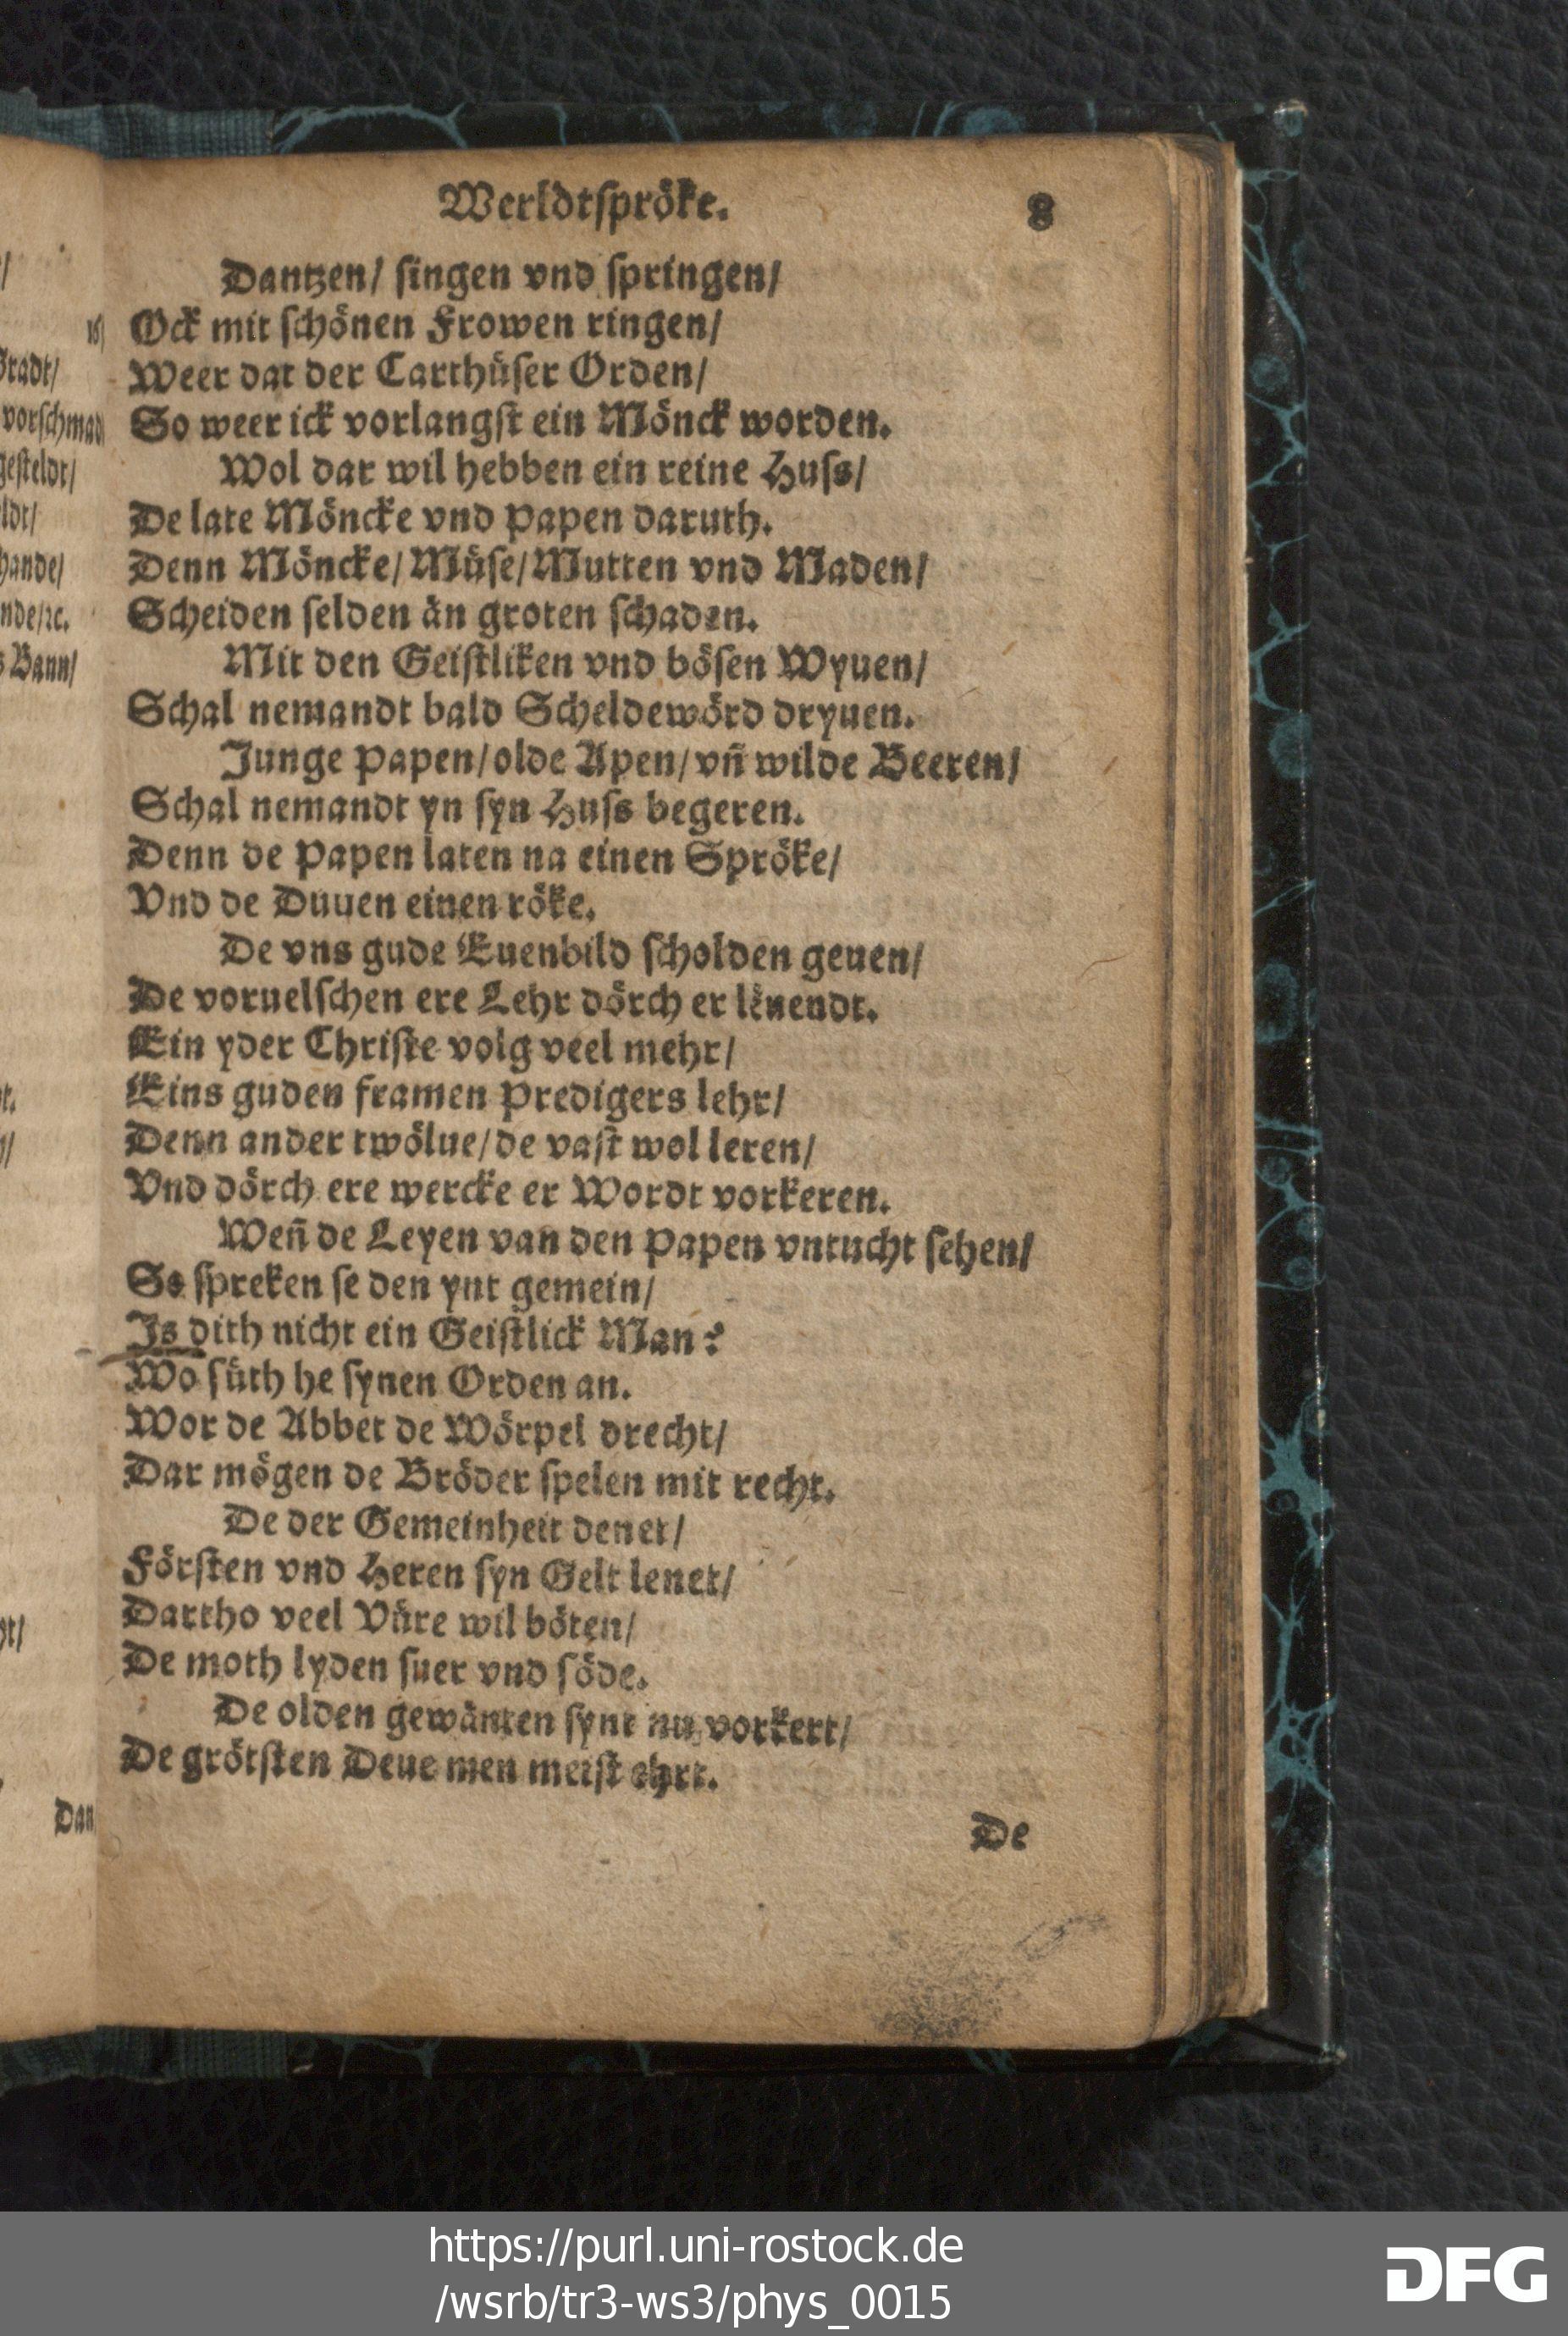 Werldtspröke. 8
Dantzen/ singen vnd springen/
Ock mit schönen Frowen ringen/
Weer dat der Carthüser Orden/
So weer ick vorlangst ein Mönck worden.
Wol dar wil hebben ein reine Huss/
De late Möncke vnd Papen daruth.
Denn Möncke/ Müse/ Mutten vnd Maden/
Scheiden selden än groten schaden.
Mit den Geistliken vnd bösen Wyuen/
Schal nemandt bald Scheldewörd dryuen.
Junge Papen/ olde Apen/ vn̄ wilde Beeren/
Schal nemandt yn syn Huss begeren.
Denn de Papen laten na einen Spröke/
Vnd de Duuen einen röke.
De vns gude Euenbild scholden geuen/
De voruelschen ere Lehr dörch er leuendt.
Ein yder Christe volg veel mehr/
Eins guden framen Predigers lehr/
Denn ander twölue/ de vast wol leren/
Vnd dörch ere wercke er Wordt vorkeren.
Wen̄ de Leyen van den Papen vntucht sehen/
So spreken se den ynt gemein/
Is dith nicht ein Geistlick Man?
Wo süth he synen Orden an.
Wor de Abbet de Wörpel drecht/
Dar mögen de Bröder spelen mit recht.
De der Gemeinheit denet/
Försten vnd Heren syn Gelt lenet/
Dartho veel Vüre wil böten/
De moth lyden suer vnd söde.
De olden gewänten synt nu vorkert/
De grötsten Deue men meist ehrt.
De
16
Gradt/
vorschmad
gesteldt/
ldt/
hande/
nde/ꝛc.
s Bann/
Dan
https://purl.uni-rostock.de
/wsrb/tr3-ws3/phys_0015
DFG